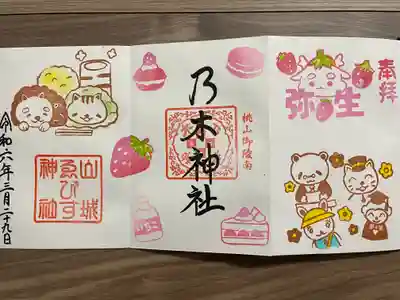 奉拝
弥生
桃山御陵南
乃木神社
いちご
山城
ゑびす
神社
令和六年三月二十九日